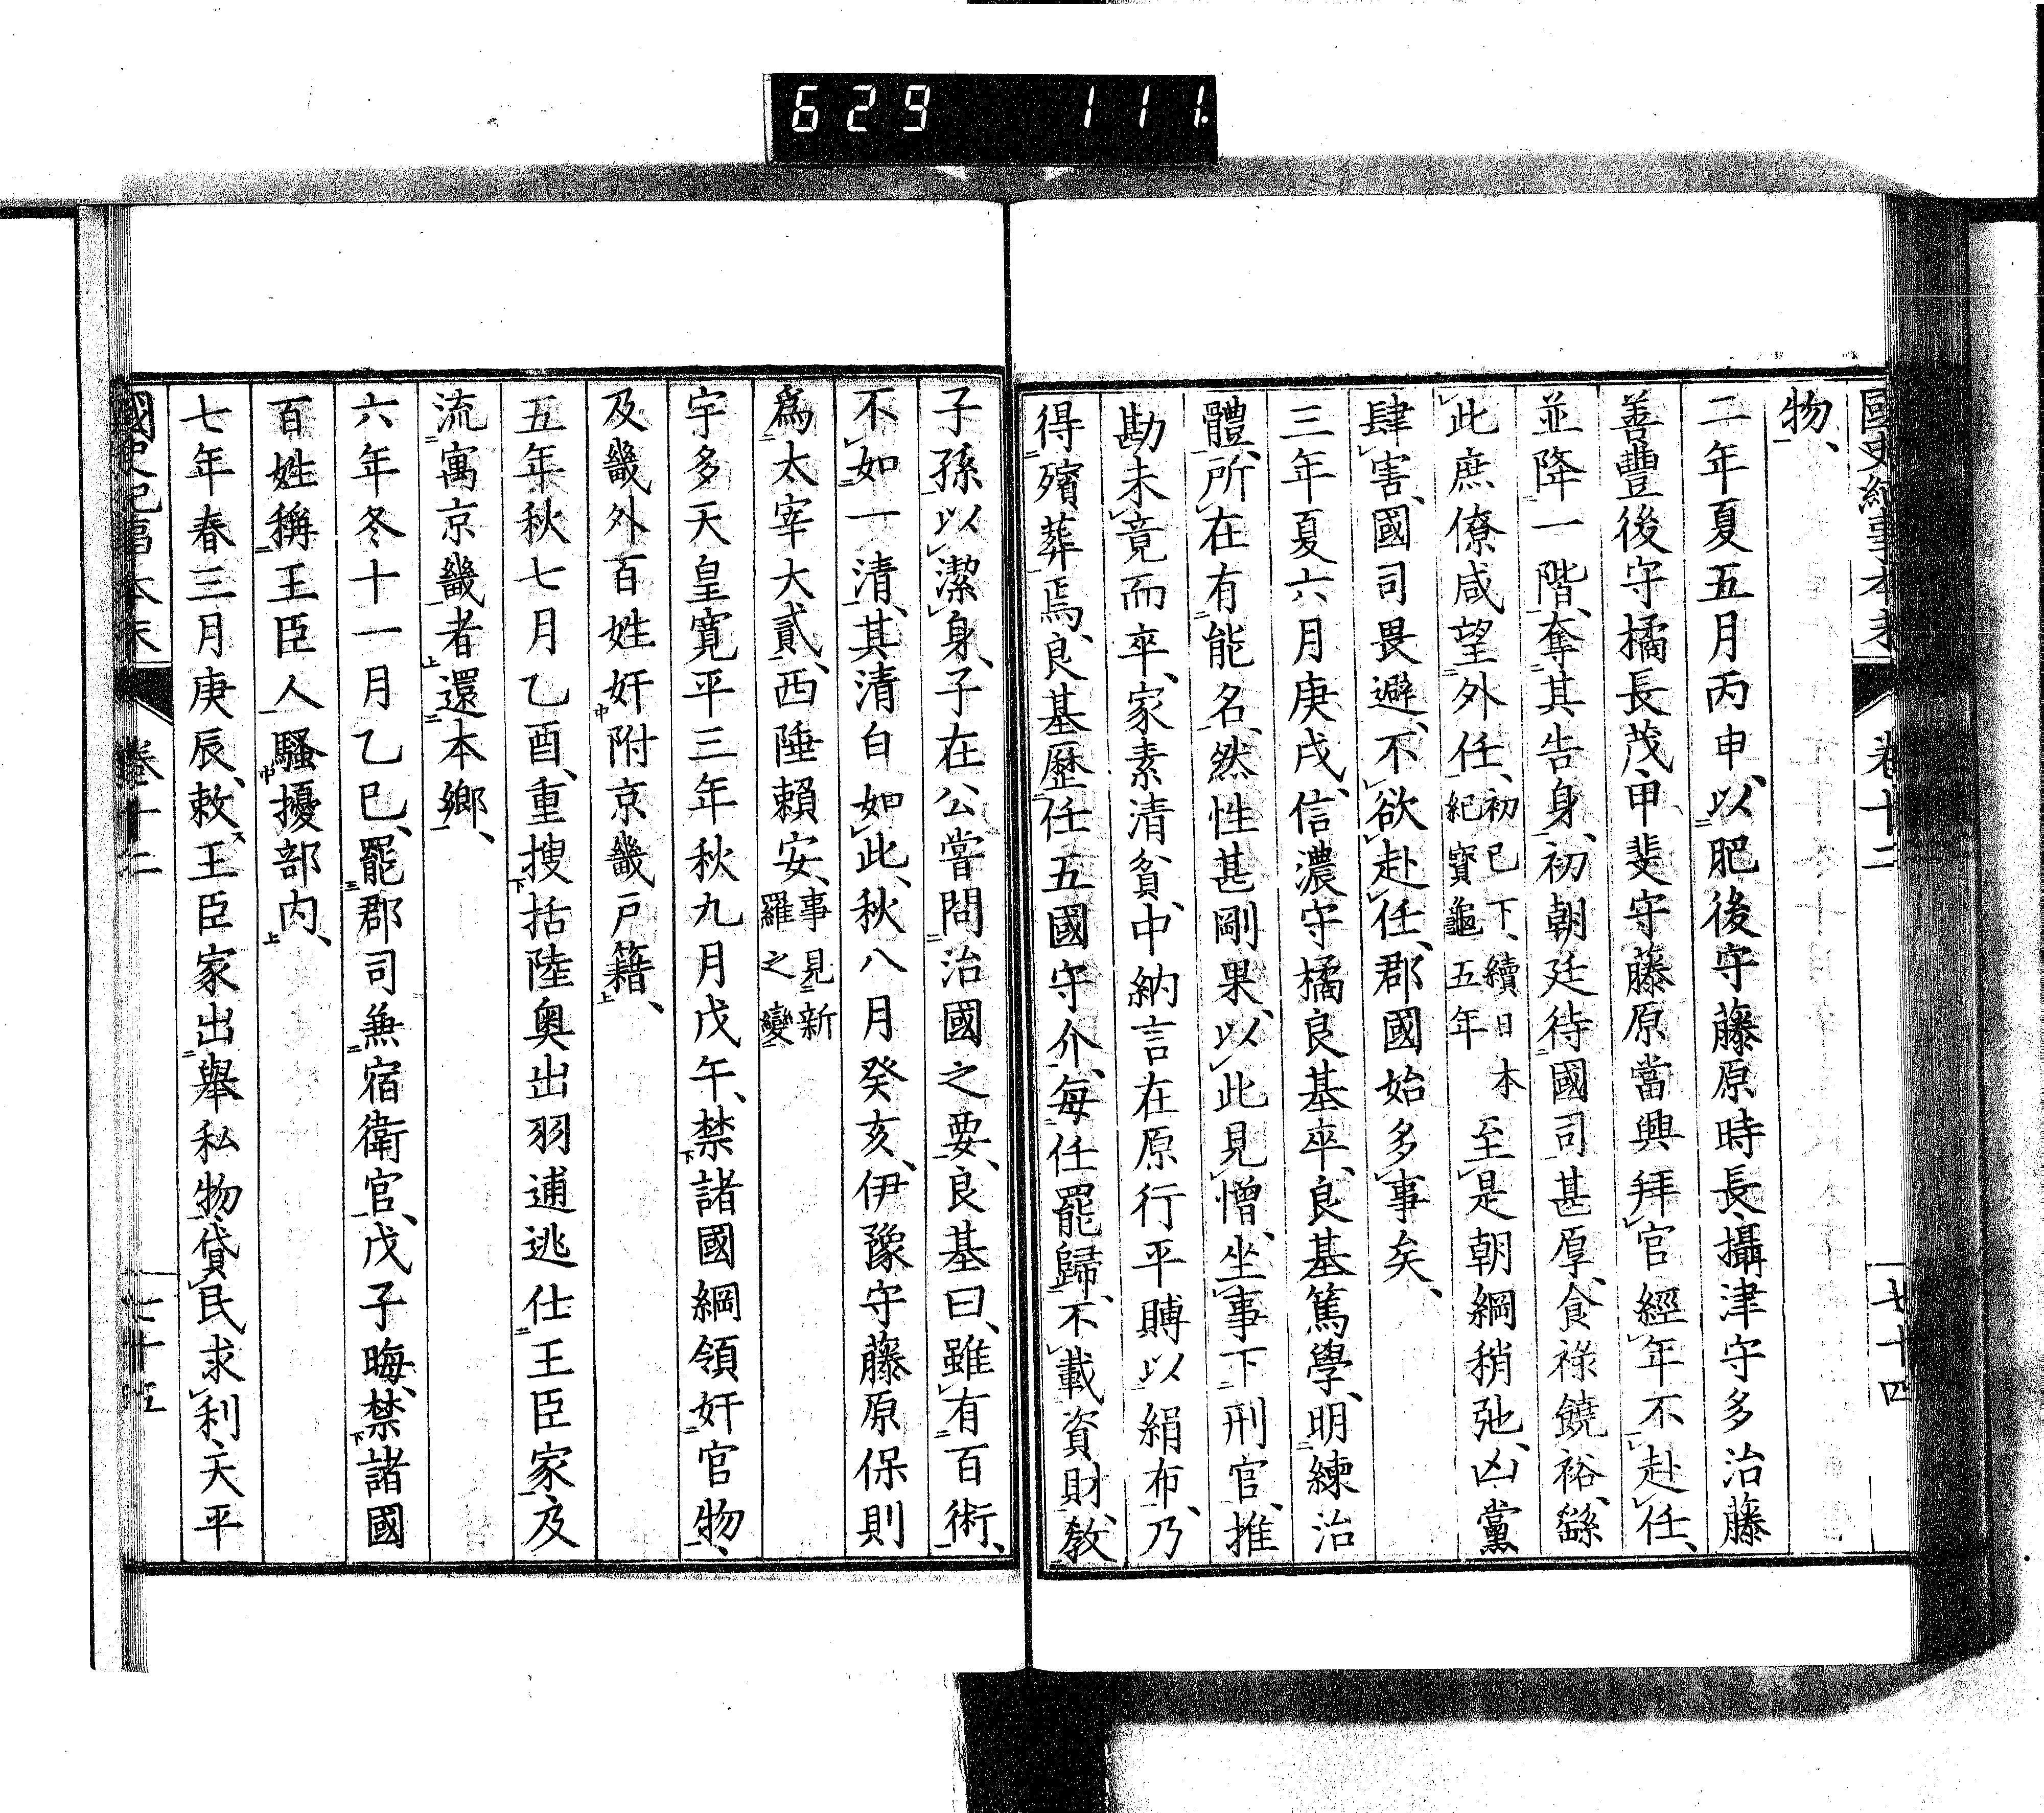 629 111.
國史紀事本末 卷十二 七十四
物、
二年夏五月丙申、以肥後守藤原時長攝津守多治藤
善豐後守橘長茂甲斐守藤原當興拜官經年不赴任、
並降一階、奪其告身、初朝廷待國司甚厚、食祿饒裕、繇
此庶僚咸望外任、初已下、續日本紀寶龜五年至是朝綱稍弛、凶黨
肆害、國司畏避、不欲赴任、郡國始多事矣、
三年夏六月庚戌、信濃守橘良基卒、良基篤學、明練治
體、所在有能名、然性甚剛果、以此見憎、坐事下刑官、推
勘未竟而卒、家素清貧、中納言在原行平賻以絹布、乃
得殯葬焉、良基歷任五國守介、每任罷歸、不載資財、教
子孫以潔身、子在公嘗問治國之要、良基曰、雖有百術、
不如一清、其清白如此、秋八月癸亥、伊豫守藤原保則
爲太宰大貳、西陲賴安、事見新羅之變
宇多天皇寬平三年秋九月戊午、禁諸國綱領奸官物、
及畿外百姓奸附京畿戶籍、
五年秋七月乙酉、重搜括陸奧出羽逋逃仕王臣家、及
流寓京畿者還本鄉、
六年冬十一月乙巳、罷郡司兼宿衛官、戊子晦、禁諸國
百姓稱王臣人騷擾部內、
七年春三月庚辰、敕、王臣家出舉私物、貸民求利、天平
國史紀事本末 卷十二 七十五